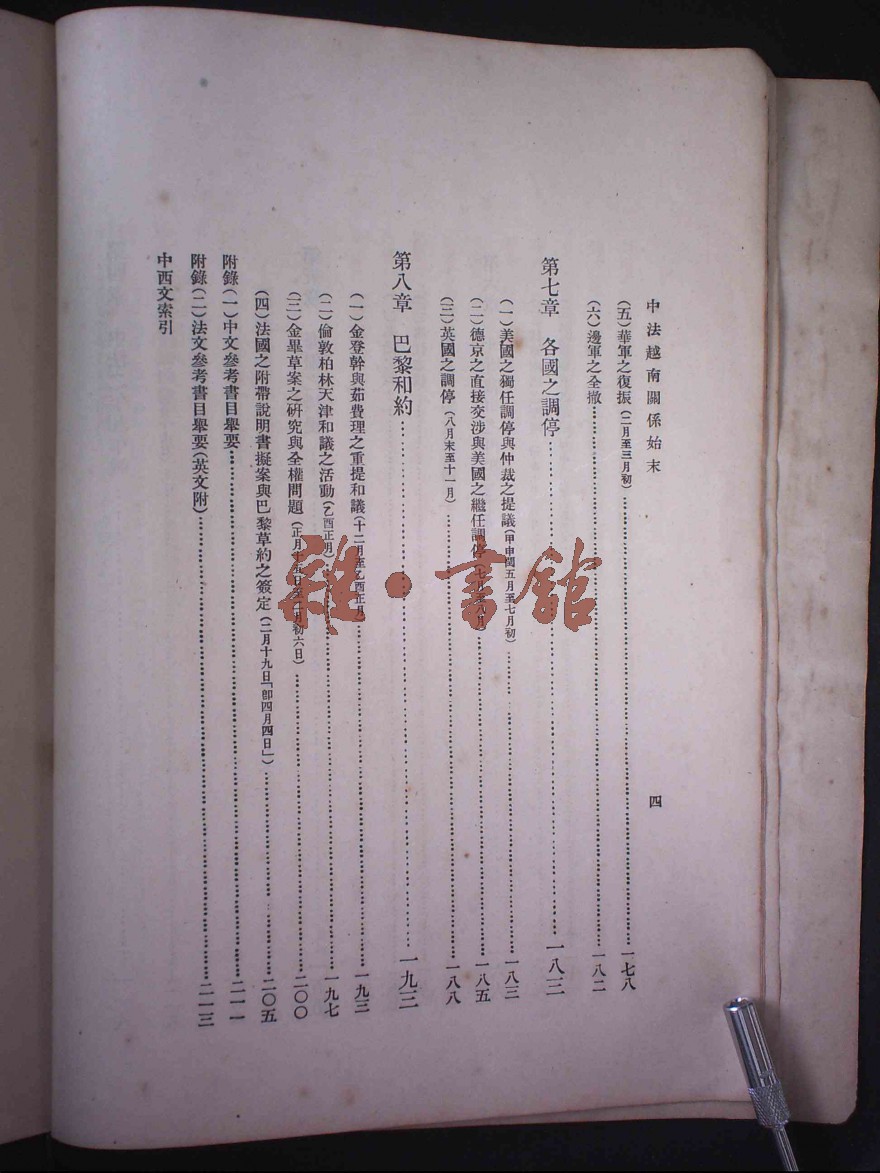 中法越南關係始末
四
(五)華軍之復振(二月至三月初)……一七八
(六)邊軍之全撤……一八二
第七章 各國之調停……一八三
(一)美國之獨任調停與仲裁之提議(甲申閏五月至七月初)……一八三
(二)德京之直接交涉與美國之繼任調停(七月至八月)……一八五
(三)英國之調停(八月末至十一月)……一八八
第八章 巴黎和約……一九三
(一)金登幹與茹費理之重提和議(十二月至乙酉正月)……一九三
(二)倫敦柏林天津和議之活動(乙酉正月)……一九七
(三)金畢草案之研究與全權問題(正月十五日至二月初六日)……二〇〇
(四)法國之附帶說明書擬案與巴黎草約之簽定(二月十九日「卽四月四日」)……二〇五
附錄(一)中文參考書目舉要……二一一
附錄(二)法文參考書目舉要(英文附)……二一三
中西文索引
雜·書館